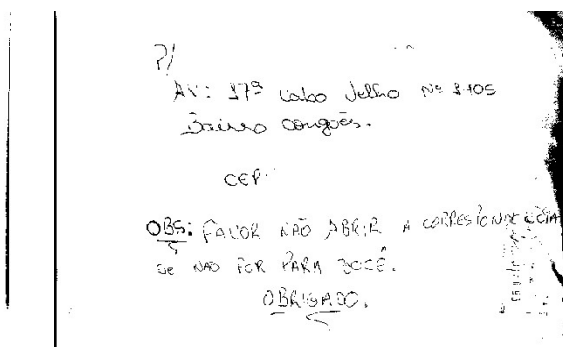 P/
AV: 17ª Cabo Velho Nº 3105
Bairro congós.
CEP:
OBS: FAVOR NÃO ABRIR A CORRESPONDÊCIA
SE NÃO FOR PARA VOCÊ.
OBRIGADO.